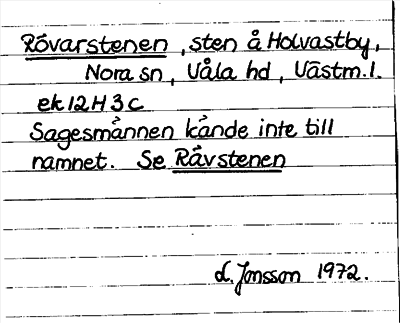 Rövarstenen, sten å Holvastby,
Nora sn, Våla hd, Västm.l.
ek 12H 3c
Sagesmannen kände inte till
namnet. Se Rävstenen
L. Jonsson 1972.